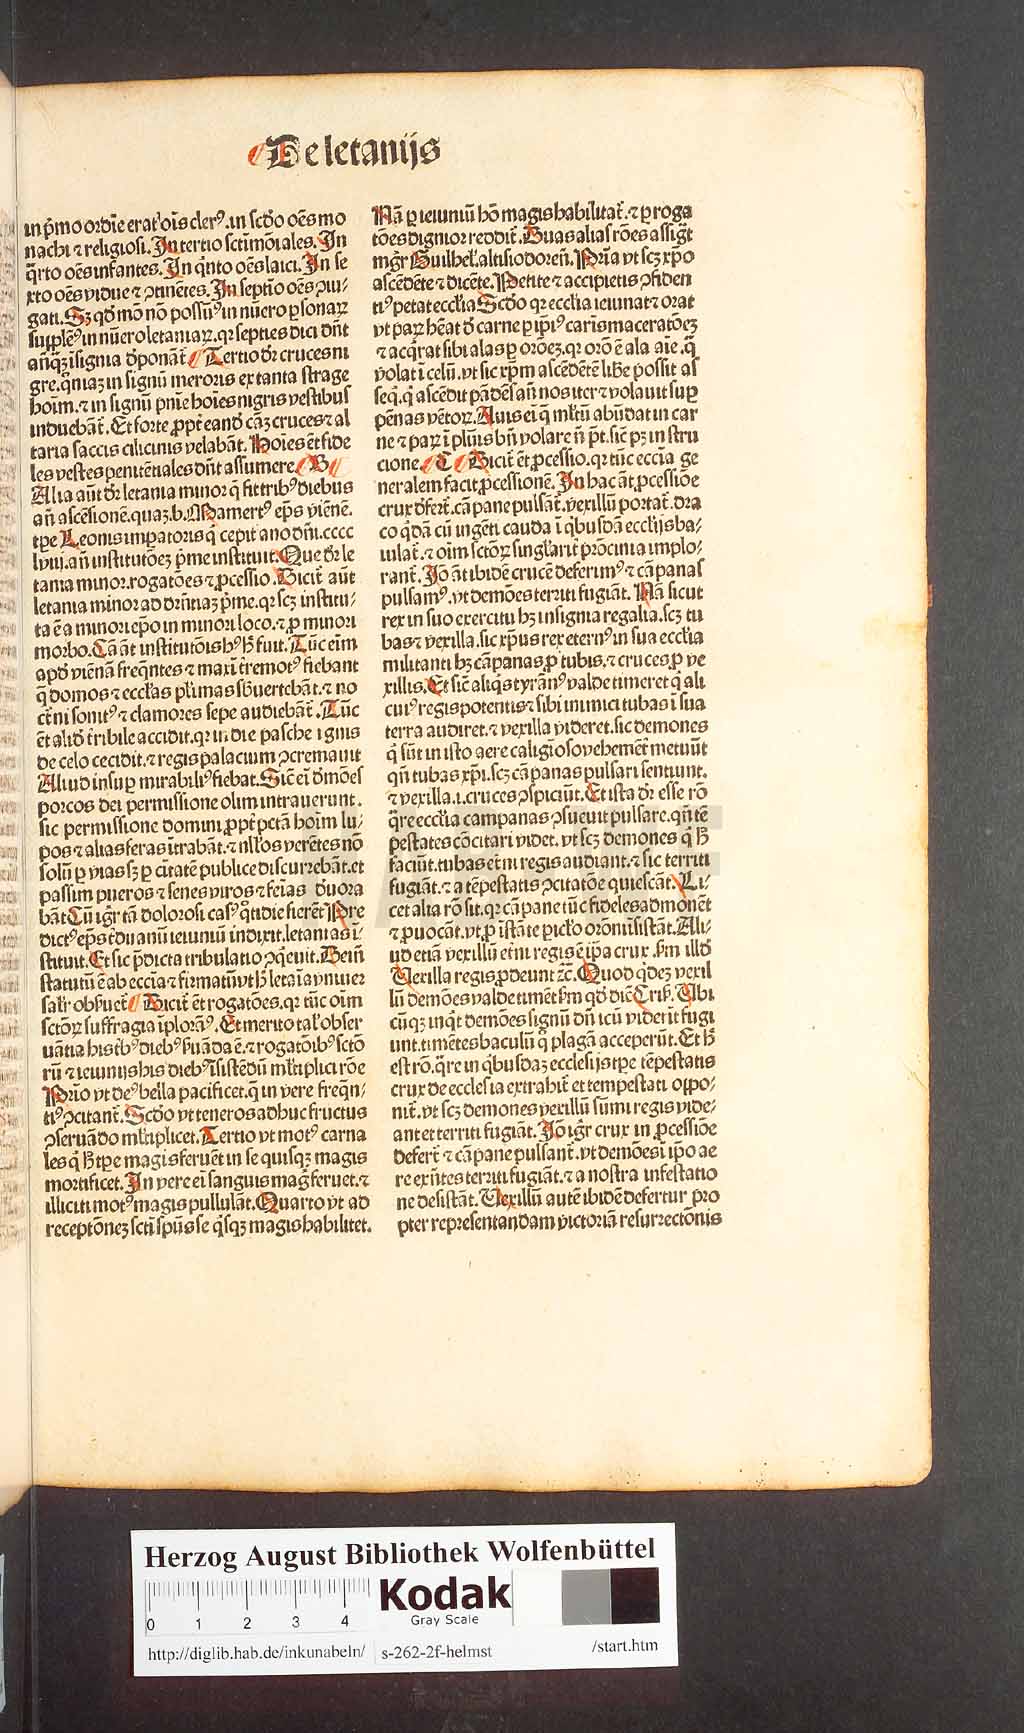 De letanijs
in p̄mo ordīe erat oīs clerꝰ. in scd̄o oēs mo
nachi ⁊ religiosi. In tertio sctīmōiales. In
q̄rto oēs infantes. In q̄nto oēs laici. In se
xto oēs vidue ⁊ ꝯtinētes. In septīo oēs ꝯiu⸗
gati. Sꝫ qd̄ mō nō possūꝰ in nūero ꝑsonaꝝ
supplēꝰ in nūero letaniaꝝ. qꝛ septies dici dn̄t
an̄qꝫ īsignia dp̄onāt̄ Tertio dr̄ cruces ni
gre. qm̄iaꝫ in signū meroris ex tanta strage
hoīm. ⁊ in signū pnīe hoīes nigris vestibus
induebāt̄. Et forte ꝓpt̄ eand̄ cāꝫ cruces ⁊ al
taria saccis cilicinis velabāt̄. Hoīes ēt fide
les vestes penitētiales dn̄t assumere B
Alia aūt dr̄ letania minor q̄ fit tribꝰ diebus
an̄ ascēsionē. quaꝫ. b. Mamertꝰ ep̄s viēnē.
tꝑe Leonis imꝑatoris q̄ cepit āno dn̄i. cccc
lviij. an̄ institutōeꝫ p̄me instituit. Que dr̄ le
tania minor. rogatōes ⁊ ꝓcessio. Dicit̄ aūt
letania minor ad dr̄ntiaꝫ p̄me. qꝛ scꝫ institu⸗
ta ē a minori ep̄o in minori loco. ⁊ ꝓ minori
morbo. Cā āt institutōis hꝰ h̄ fuit. Tūc eīm
apd̄ viēnā freq̄ntes ⁊ maxī t̄remotꝰ fiebant
q̄ domos ⁊ eccl̄as pl̄imas sb̄uertebāt̄. ⁊ no
ct̄ni sonitꝰ ⁊ clamores sepe audiebāt̄. Tūc
ēt aliđ t̄ribile accidit. qꝛ in die pasche ignis
de celo cecidit. ⁊ regis palacium ꝯcremauit
Aliud insuꝑ mirabiliꝰ fiebat. Sic̄ eī dm̄ōes
porcos dei permissione olim intrauerunt.
sic permissione domini ꝓpt̄ pctā hoīm lu⸗
pos ⁊ alias feras īt̄rabāt. ⁊ nll̄os verētes nō
solū ꝑ vias sꝫ ꝑ ciītatē publice discurrebāt. et
passim pueros ⁊ senes viros ⁊ feīas d̄uora
bāt Cū igr̄ tā dolorosi casꝰ q̄tidie fierēt Pre
dictꝰ ep̄s t̄duanū ieiuniū indixit. letanias ī
stituit. Et sic p̄dicta tribulatio ꝯq̄euit. Dein̄
statutū ē ab eccīa ⁊ firmatū vt h̄ letaīa vniuer
salr̄ obs̄uet̄ Dicit̄ ēt rogatōes. qꝛ tūc oīm
sctōꝝ suffragia īplorāꝰ. Et merito tal̓ obser
uātia his tbꝰ diebꝰ s̄uāda ē. ⁊ rogatōibꝰ sctō
rū ⁊ ieiunijs his diebꝰ īsistēdū ml̄tiplici rōe
Prīo vt deꝰ bella pacificet. q̄ in vere freq̄n⸗
tiꝰ ꝯcitant̄. Scd̄o vt teneros adhuc fructus
ꝯseruādo ml̄tiplicet. Tertio vt motꝰ carna
les q̄ h̄ tꝑe magis feruēt in se quisqꝫ magis
mortificet. In vere eī sanguis mag̓ feruet. ⁊
illiciti motꝰ magis pullulāt. Quarto vt ad
receptōneꝫ sctī spūs se q̄sqꝫ magis habilitet.
Nā ꝑ ieiuniū hō magis habilitat̄. ⁊ ꝑ roga
tōes dignior reddit̄. Duas alias rōes assigt̄
mgr̄ Guilhel̓. altisiodoren̄. Prīa vt scꝫ xp̄o
ascēdēte ⁊ dicēte. Petite ⁊ accipietis ꝯfiden
tiꝰ petat eccl̄ia Scd̄o qꝛ eccl̄ia ieiunat ⁊ orat
vt paꝝ hēat d̄ carne ꝑ ipīꝰ carīs maceratōeꝫ
⁊ acq̄rat sibi alas ꝑ orōeꝫ. qꝛ orō ē ala aīe. q̄
volat ī celū. vt sic xp̄m ascēdētē libe possit as
seq̄. q̄ ascēdit pādēs an̄ nos iter ⁊ volauit suꝑ
pēnas vētoꝝ. Auis eī q̄ ml̄tū abūdat in car
ne ⁊ paꝝ ī plūis bn̄ volare n̄ pt̄. sic̄ pꝫ in stru
cione C Dicit̄ ēt ꝓcessio. qꝛ tūc eccīa ge
neralem facit ꝓcessionē. In hac āt ꝓcessiōe
crux dfert̄. cāpane pulsāt̄. vexillū portat̄. dra
co qd̄ā cū ingēti cauda ī q̄busdā eccl̄ijs ba⸗
iulat̄. ⁊ oīm sctōꝝ singl̄arit̄ prōcinia implo⸗
rant̄. Iō āt ibidē crucē deferimꝰ ⁊ cāpanas
pulsamꝰ. vt demōes territi fugiāt. Nā sicut
rex in suo exercitu hꝫ insignia regalia. scꝫ tu
bas ⁊ vexilla. sic xp̄us rex eternꝰ in sua eccl̄ia
militanti hꝫ cāpanas ꝓ tubis. ⁊ cruces ꝓ ve
xillis. Et sic̄ aliq̄s tyrānꝰ valde timeret q̄ ali
cuiꝰ regis potentis ⁊ sibi inimici tubas ī sua
terra audiret. ⁊ vexilla videret. sic demones
q̄ sūt in isto aere caligīoso vehemet̄ metuūt
qn̄ tubas xp̄i. scꝫ cāpanas pulsari sentiunt.
⁊ vexilla. i. cruces ꝯspiciūt. Et ista dr̄ esse rō
q̄re eccl̄ia campanas ꝯsueuit pulsare. qn̄ tē
pestates cōcitari videt. vt scꝫ demones q̄ h̄
faciūt. tubas et̄ni regis audiant. ⁊ sic territi
fugiāt. ⁊ a tēpestatis ꝯcitatōe quiescāt. Li⸗
cet alia rō sit. qꝛ cāpane tūc fideles admonēt
⁊ ꝓuocāt. vt ꝓ īstāte picl̓o orōni īsistāt. Ali⸗
ud etiā vexillū et̄ni regis ē ip̄a crux. s̄m illđ
Vexilla regis ꝓdeunt ⁊c̄. Quod qd̓eꝫ vexil
lū demōes valde timēt s̄m qd̄ dic̄ Cris̓. Vbi
cūqꝫ inq̄t demōes signū dn̄icū viderīt fugi
unt. timētes baculū q̄ plagā acceperūt. Et h̄
est rō. q̄re in q̄busdaꝫ ecclesijs tꝑe tēpestatis
crux de ecclesia extrahit̄ et tempestati oppo⸗
nit̄. vt scꝫ demones vexillū sūmi regis vide⸗
ant et territi fugiāt. Iō igr̄ crux in ꝓcessiōe
defert̄ ⁊ cāpane pulsant̄. vt demōes ī ipō ae
re exn̄tes territi fugiāt. ⁊ a nostra infestatio
ne desistāt. Vexillū autē ibidē defertur pro
pter representandam victoriā resurrectōnis
Herzog August Bibliothek Wolfenbüttel
Kodak
Gray Scale
0 1 2 3 4
http://diglib.hab.de/inkunabeln/ s-262-2f-helmst /start.htm